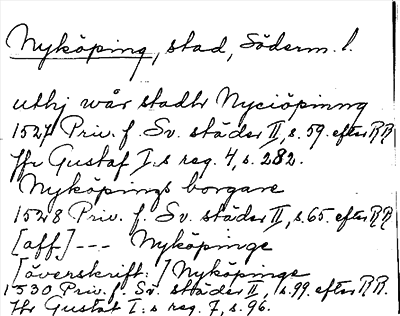 Nyköping, stad, Söderm. l.
uthj wår stadhr Nyciöpinng
1527 Priv. f. Sv. städer II, s. 59. efter RR
Jfr Gustaf I:s reg. 4, s. 282.
Nyköpings borgare
1528 Priv. f. Sv. städer II, s. 65. efter RR
[aff] --- Nyköpinge
[överskrift:] Nyköpinge
1530 Priv. f. Sv. städer II, s. 99. efter RR.
Jfr Gustaf I:s reg. 7, s. 96.